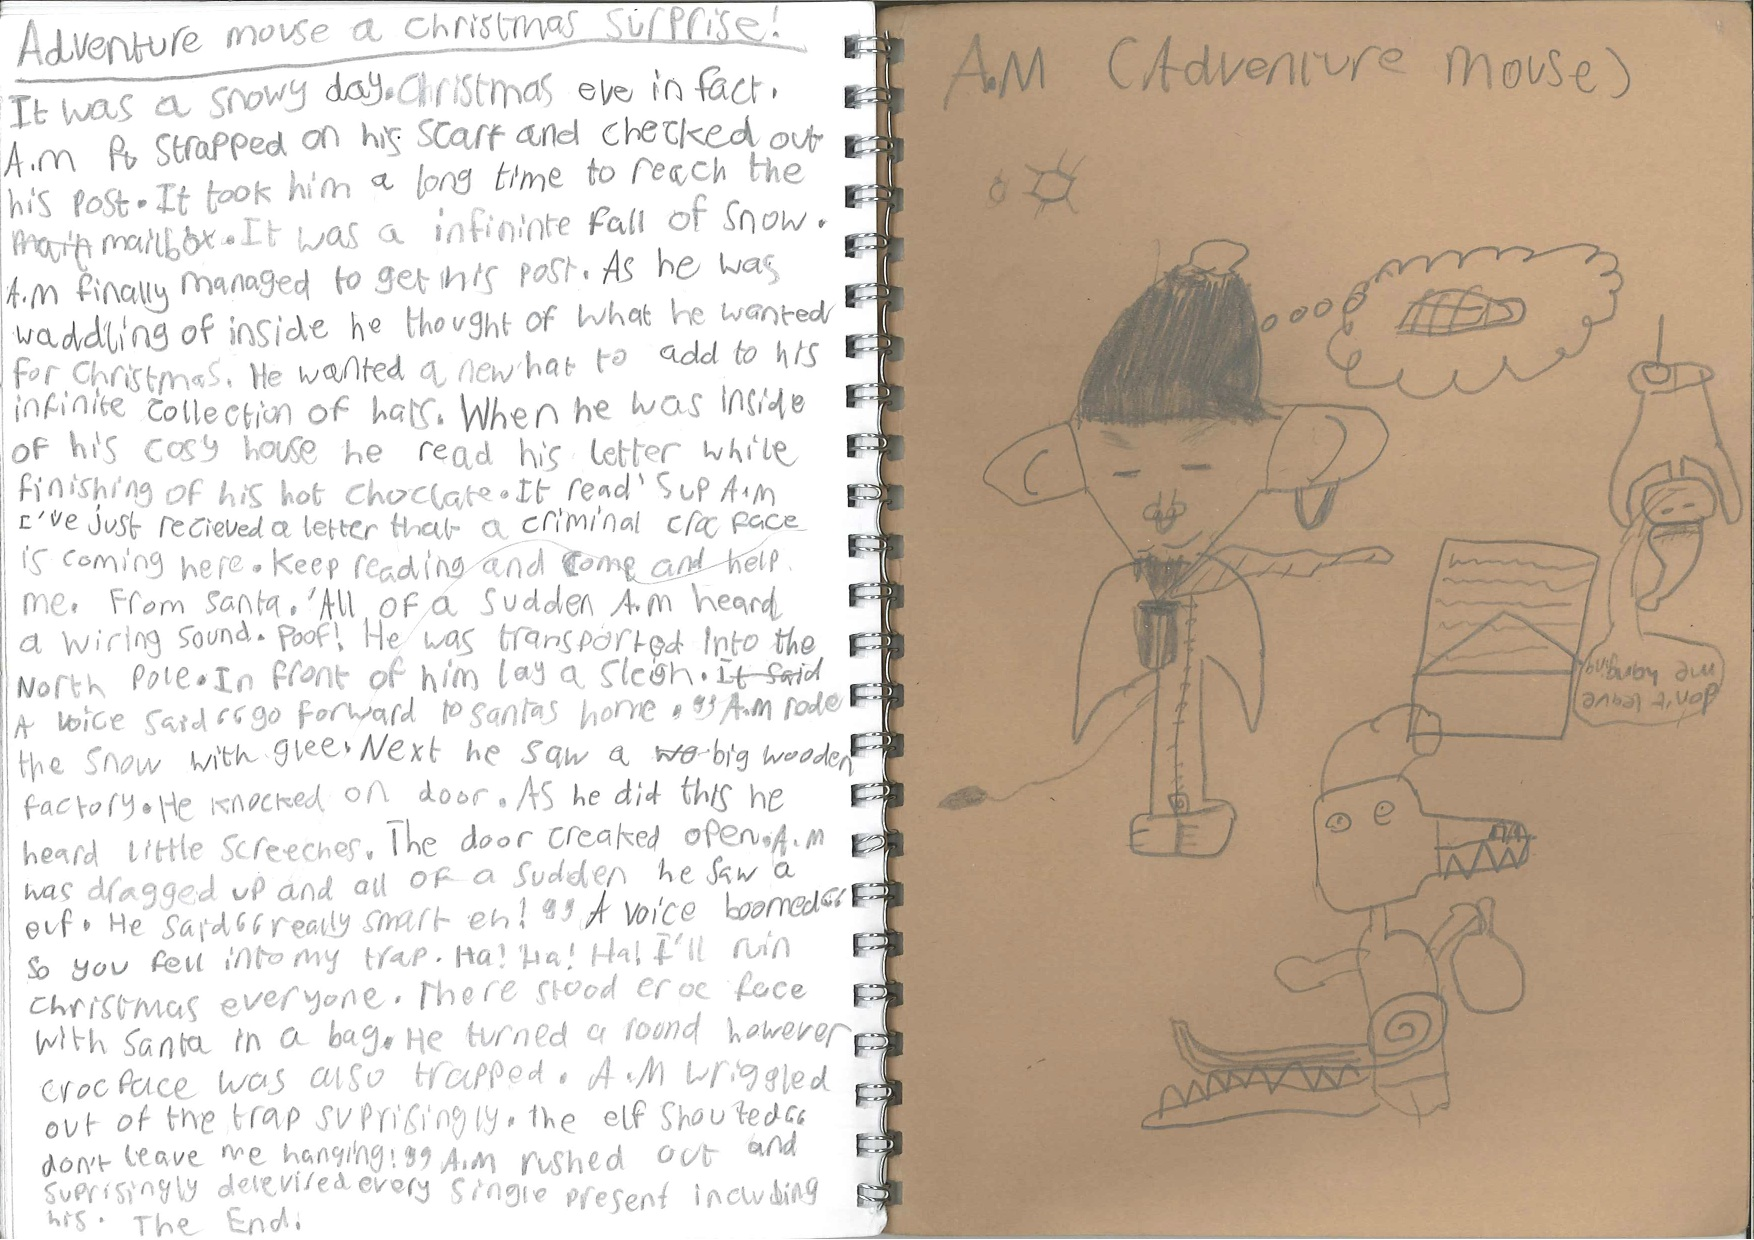 Adventure mouse a christmas surprise!
It was a snowy day. Christmas eve in fact.
A.m Pu strapped on his scarf and checked out
his post. It took him a long time to reach the
main mailbox. It was a infininte fall of snow.
A.m finally managed to get his post. As he was
waddling of inside he thought of what he wanted
for Christmas. He wanted a new hat to add to his
infinite collection of hats. When he was inside
of his cosy house he read his letter while
finishing of his hot choclate. It read 'Sup A.m
I've just recieved a letter that a criminal croc face
is coming here. Keep reading and come and help
me. From Santa.' All of a sudden A.m heard
a wiring sound. Poof! He was transported into the
North Pole. In front of him lay a sleigh. It said
A voice said “go forward to santas home.” A.m rode
the snow with glee. Next he saw a wo big wooden
factory. He knocked on door. As he did this he
heard little screeches. The door creaked open. A.m
was dragged up and all of a sudden he saw a
elf. He said “really smart eh!” A voice boomed“
so you fell into my trap. Ha! Ha! Ha! I'll ruin
christmas everyone. There stood croc face
with Santa in a bag. He turned a round however
croc face was also trapped. A.M wriggled
out of the trap suprisingly. the elf shouted“
don't leave me hanging!” A.M rushed out and
suprisingly delevired every single present including
his. The End.
A.M (Adventure mouse)
don't leave
me hanging